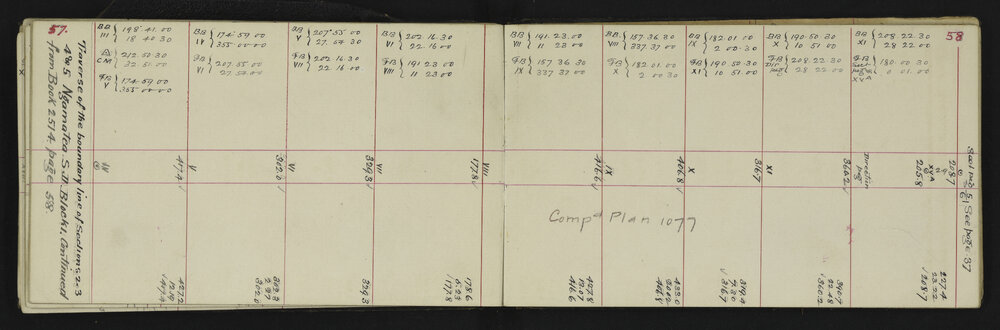 57.
Traverse of the boundary line of Sections 2, 3
4 & 5 Ngamatea S.D. Block I, Continued
from Book 2514. page 58.
BB III { 198 41.00
18 40 30
Δ CM { 212 50 30
32 51 00
FB V { 174 59 00
355 00 00
BB IV { 174 59 00
355 00 00
FB VI { 207 55 00
27 54 00
BB V { 207 55 00
27 54 30
FB VII { 202 16 30
22 16 00
BB VI { 202 16 30
22 16 00
FB VIII { 191 23 00
11 23 00
BB VII { 191. 23 00
11 23 00
FB IX { 157 36 30
337 37 00
BB VIII { 157. 36 30
337 37 00
FB X { 182 01. 00
2 00 30
BB IX { 182 01 00
2 00 30
FB XI { 190 50 30
10 51 00
BB X { 190 50 30
10 51 00
FB Dir peg { 208 22 30
28 22 00
BB XI { 208 22 30
28 22 00
FB { 180 00 30
0 01 00
58
IV
417.9
V
302.0
VI
329.3
VII
177.8
VIII
416.6
IX
406.8
X
316.7
XI
360.2
Direction peg
205.8
XVA
208.7
See page 37
Compd Plan 1077
427.2
417.9
302.0
329.3
178.6
177.8
427.8
416.6
433.0
406.8
316.7
360.2
227.4
208.7